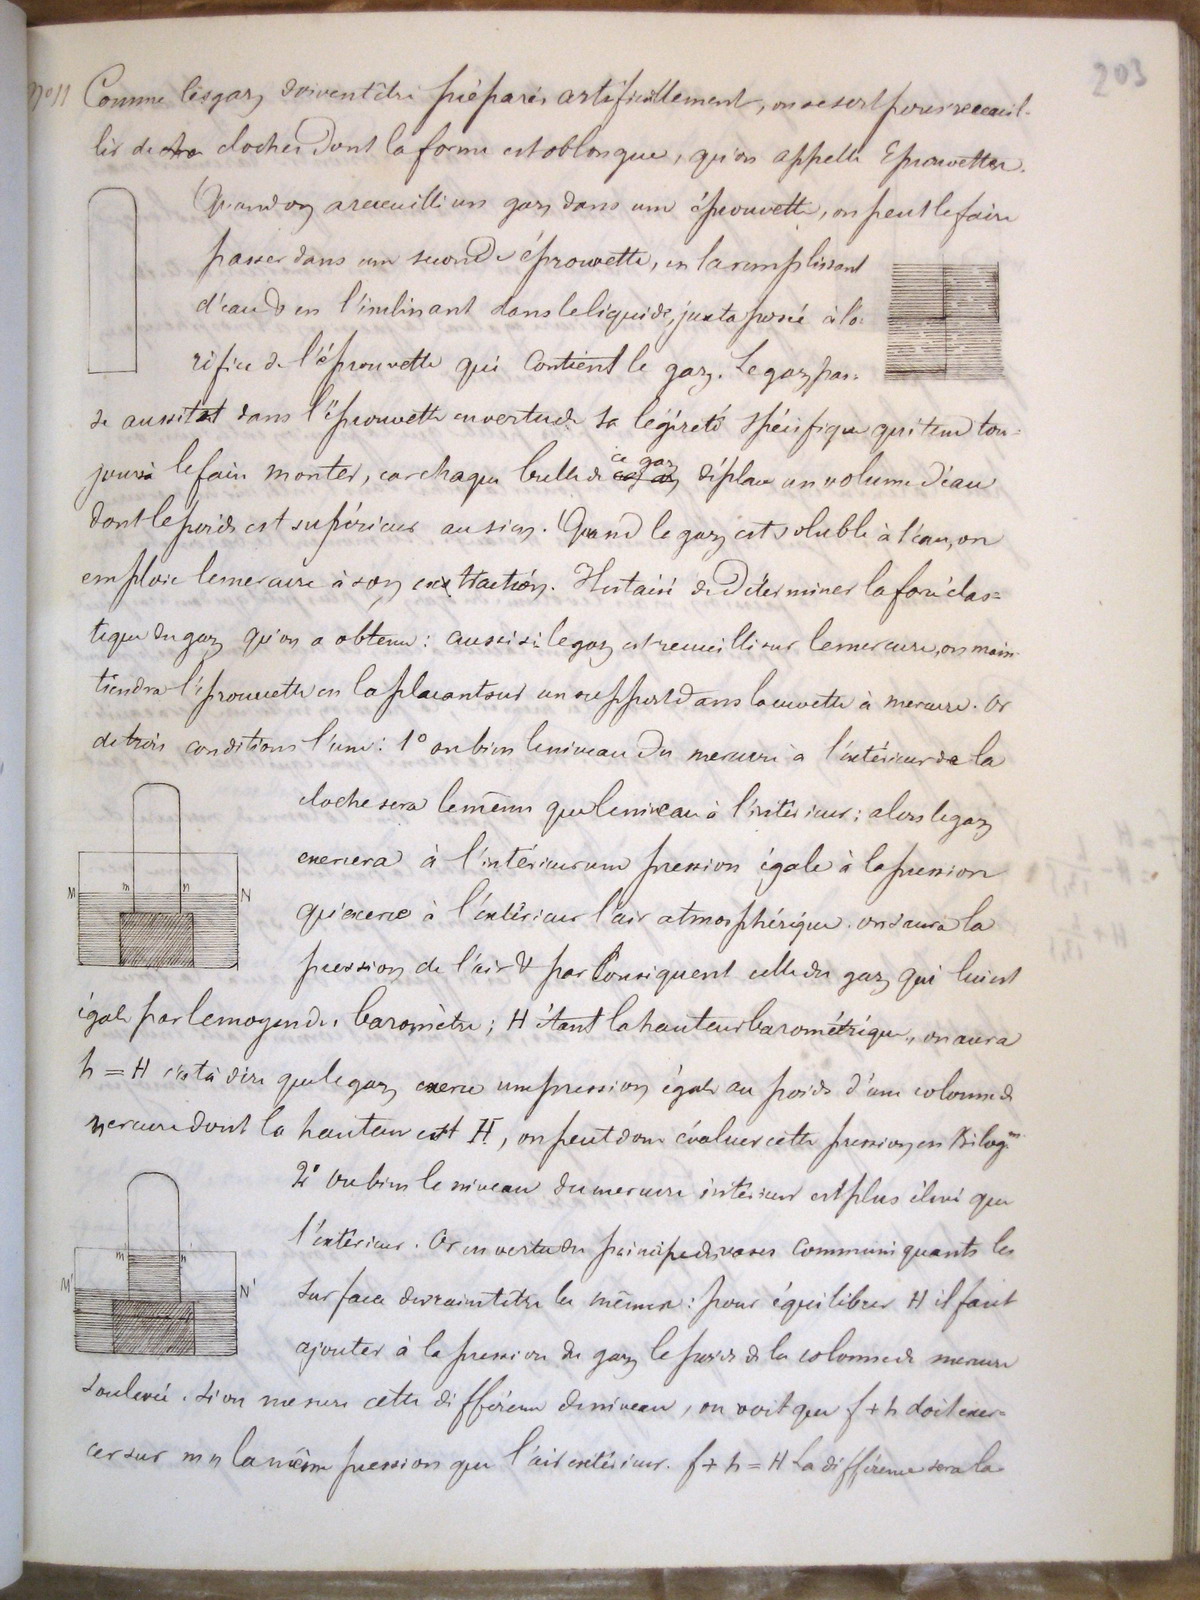 203
N° 11 Comme les gaz doivent être préparés artificiellement, on se sert pour recueil-
lir de cloches dont la forme est oblongue, qu'on appelle Eprouvettes.
Quand on a recueilli un gaz dans une éprouvette, on peut le faire
passer dans une seconde éprouvette, en la remplissant
d'eau & en l'inclinant dans le liquide, juxtaposée à l'o-
rifice de l'éprouvette qui contient le gaz. Le gaz pas-
se aussitôt dans l'éprouvette en vertu de sa légèreté spécifique qui tend tou-
jours à le faire monter, car chaque bulle de ce gaz déplace un volume d'eau
dont le poids est supérieur au sien. Quand le gaz est soluble à l'eau, on
emploie le mercure à son extraction. Il est aisé de déterminer la force élas-
tique du gaz qu'on a obtenu : aussi si le gaz est recueilli sur le mercure, on main-
tiendra l'éprouvette en la plaçant sur un support dans la cuvette à mercure. Or
de trois conditions l'une : 1° ou bien le niveau du mercure à l'extérieur de la
cloche sera le même que le niveau à l'intérieur ; alors le gaz
exercera à l'intérieur une pression égale à la pression
qu'exerce à l'extérieur l'air atmosphérique. on saura la
pression de l'air & par conséquent celle du gaz qui lui est
égale par le moyen du baromètre ; H étant la hauteur barométrique, on aura
h = H c'est à dire que le gaz exerce une pression égale au poids d'une colonne de
mercure dont la hauteur est H, on peut donc évaluer cette pression en Kilog.
2° ou bien le niveau du mercure intérieur est plus élevé que
l'extérieur. Or en vertu du principe des vases communiquants les
surfaces devraient être les mêmes : pour équilibrer H il faut
ajouter à la pression du gaz le poids de la colonne de mercure
soulevée. Si on mesure cette différence de niveau, on voit que f + h doit exer-
cer sur m n la même pression que l'air extérieur. f + h = H La différence sera la
M m n N
M' m n N'